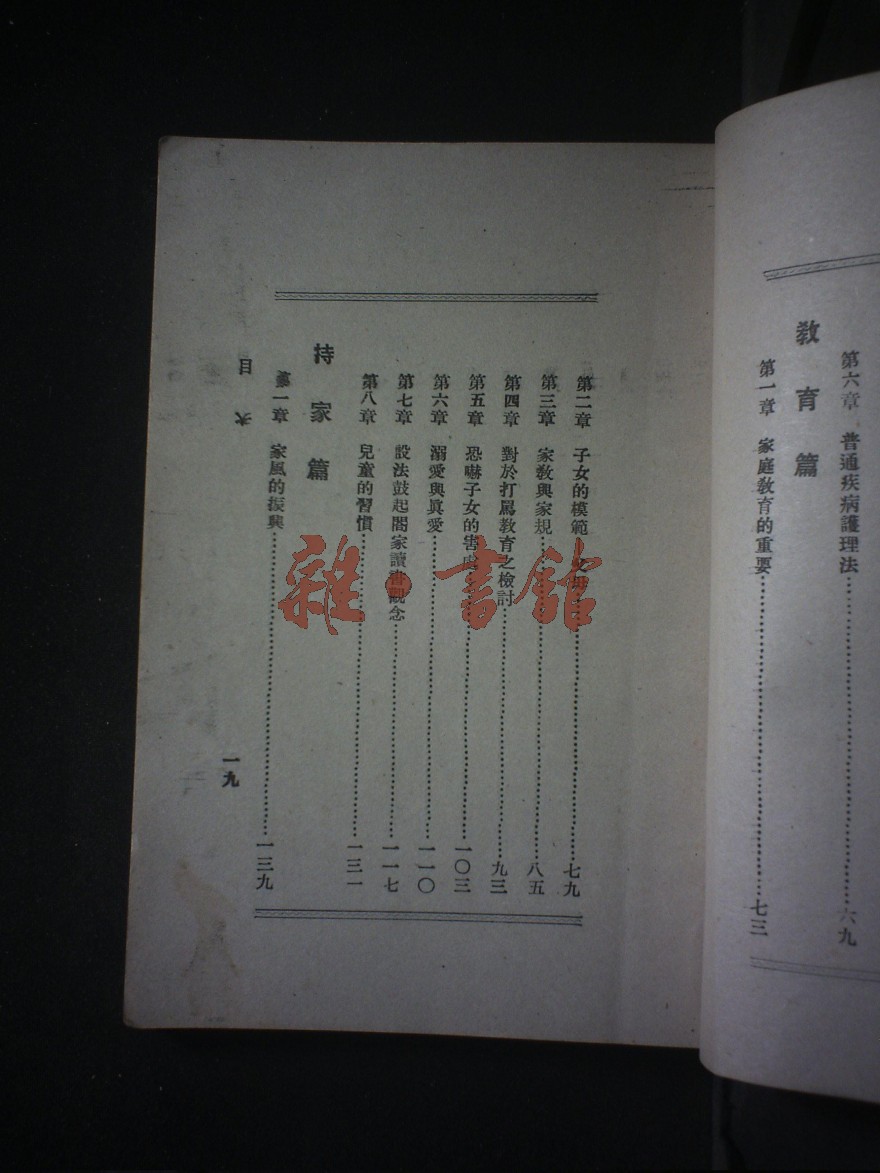 第六章 普通疾病護理法 六九
教育篇
第一章 家庭敎育的重要 七三
第二章 子女的模範 七九
第三章 家敎與家規 八五
第四章 對於打罵敎育之檢討 九三
第五章 恐嚇子女的害處 一〇三
第六章 溺愛與眞愛 一一〇
第七章 設法鼓起閤家讀書觀念 一一七
第八章 兒童的習慣 一三一
持家篇
第一章 家風的振興 一三九
目
一九
雜·書館